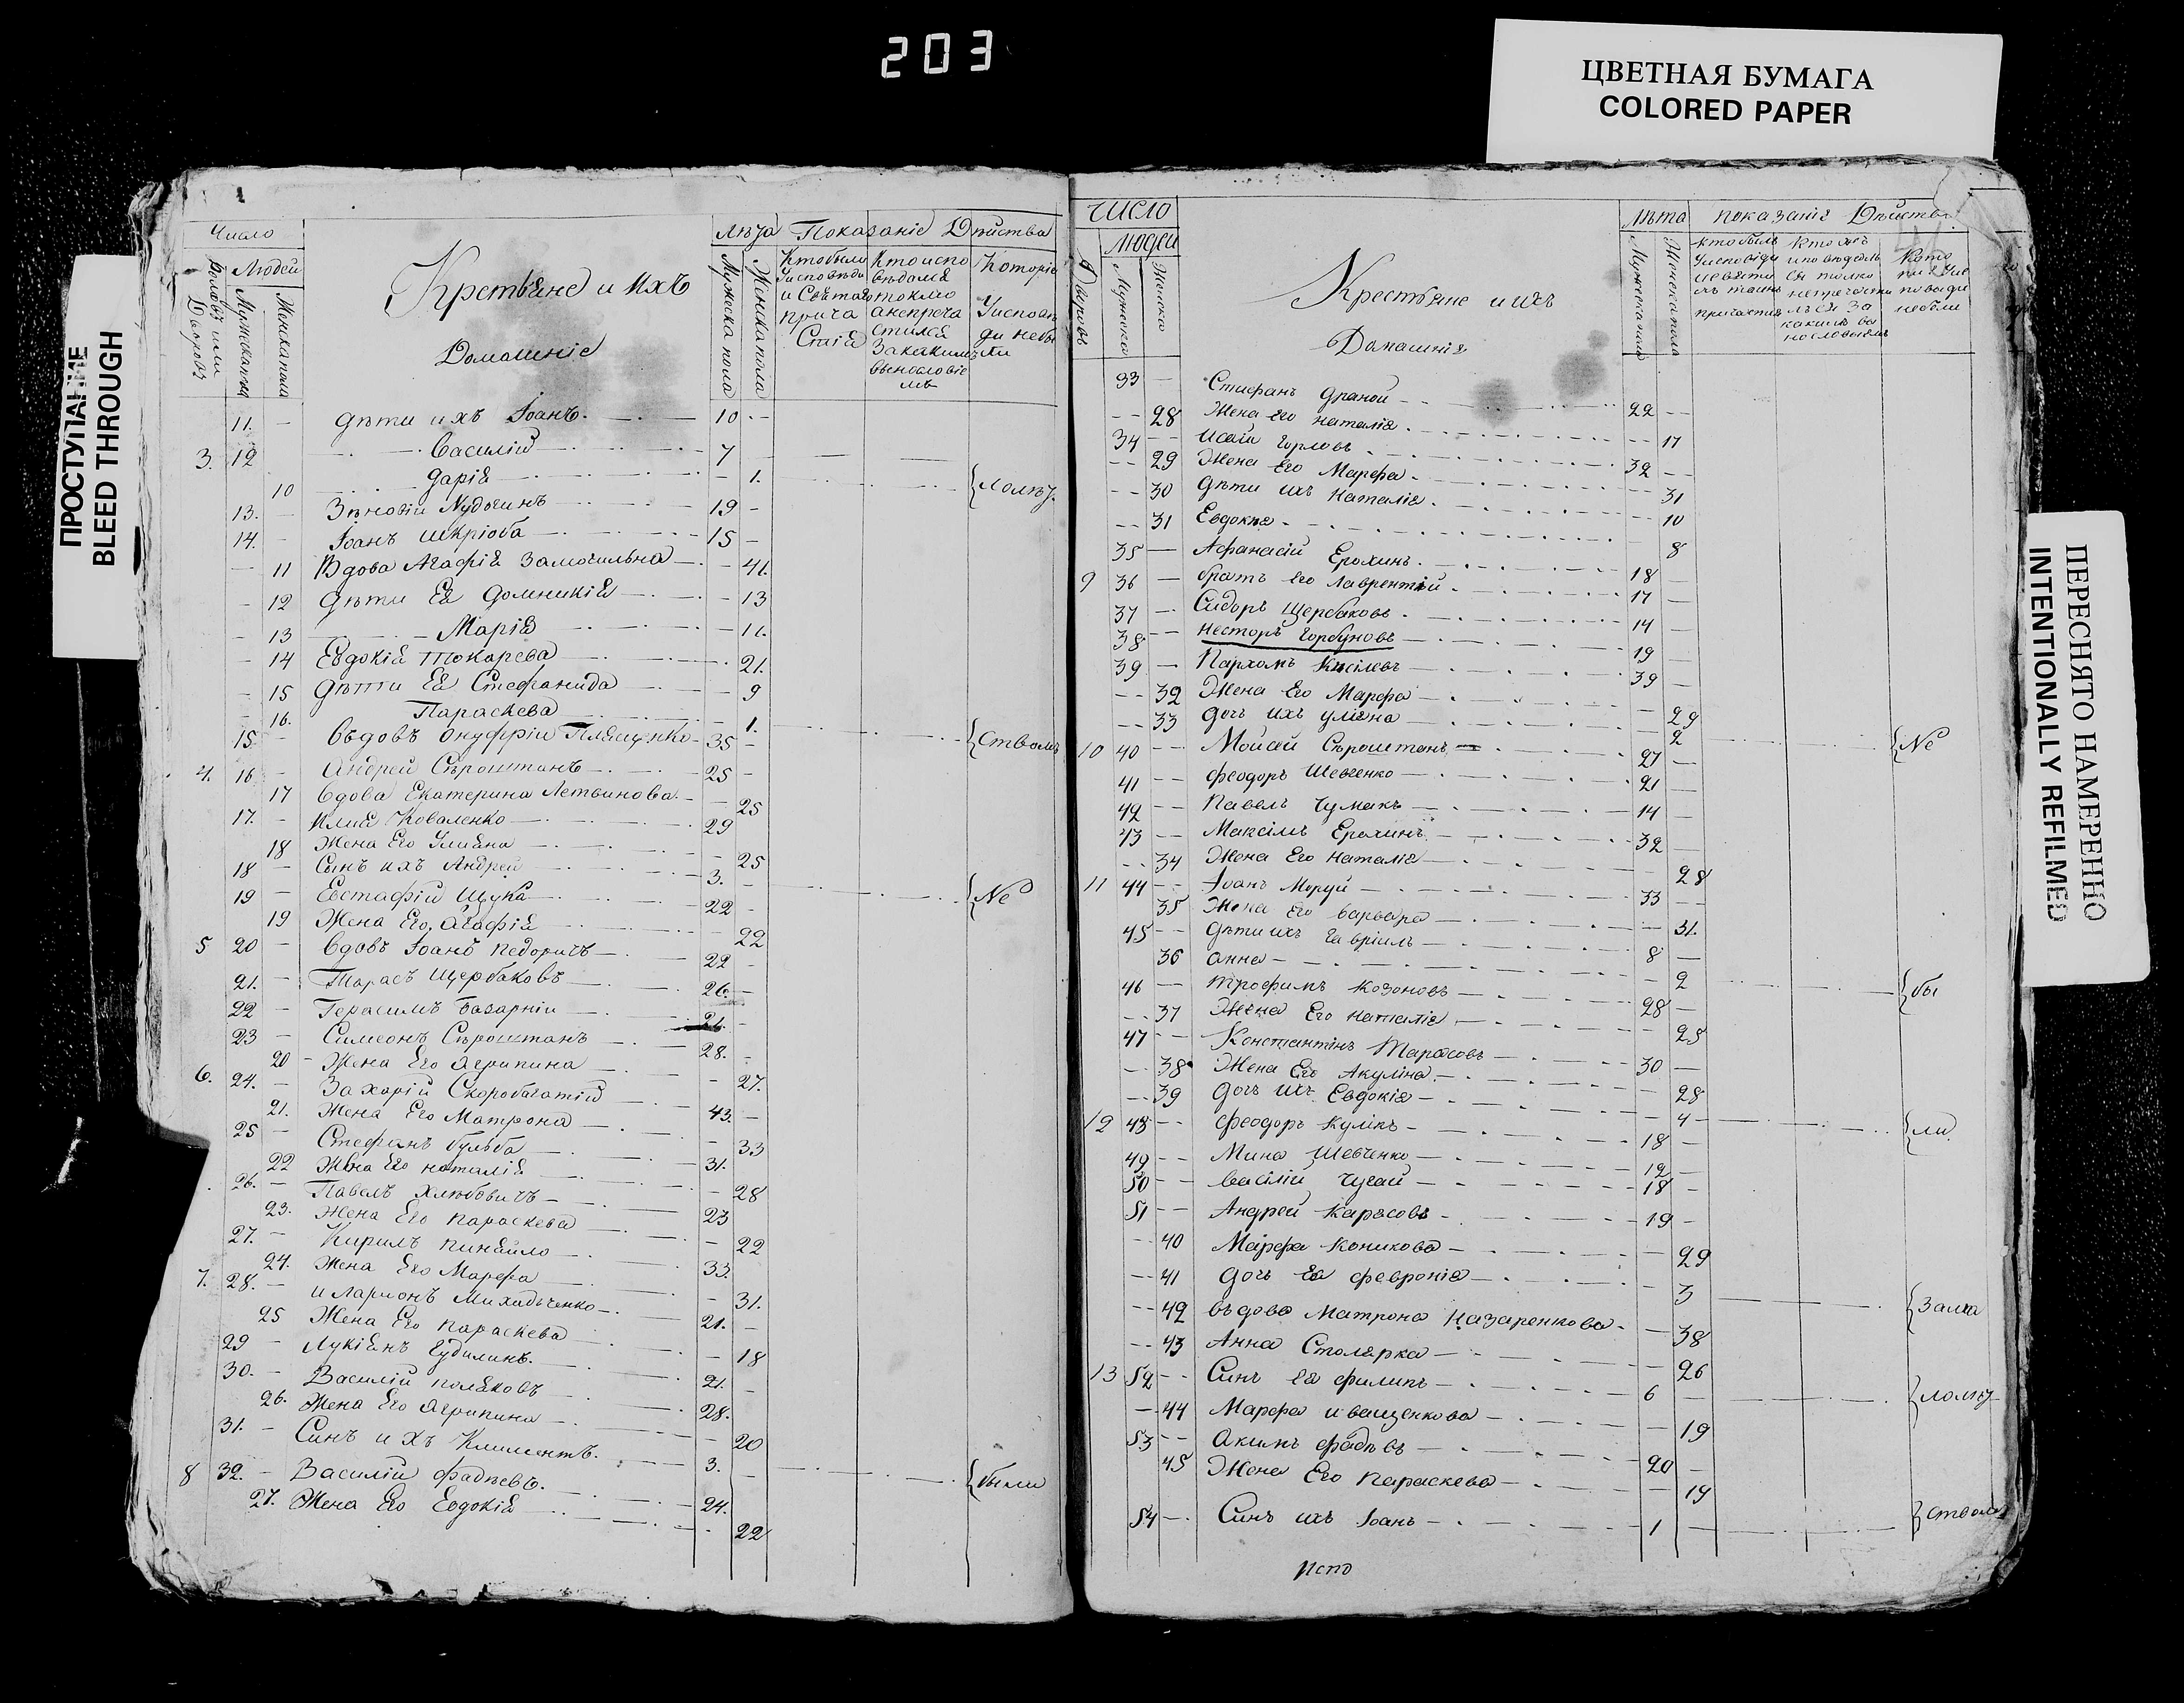 203
ЦВЕТНАЯ БУМАГА
COLORED PAPER
ПРОСТУПАНИЕ
BLEED THROUGH
ПЕРЕСНЯТО НАМЕРЕННО
INTENTIONALLY REFILMED
Число
Людей
Дворовъ
Мужеска пола
Женска пола
Крестьяне и ихъ
Домашніе
Лѣта
Мужеска пола
Женска пола
Показаніе Дѣйства
Кто были
у исповѣди
и Святаго
прича
стія
Кто испо
вѣдался
токмо
а не прича
стился
За какимъ
виносло віе
мъ
Которіе
У исповѣ
ди не бы
ли
11. Дѣти ихъ Іоанъ. 10
3. 12 Василій 7
10 Дарія 1. {Полѣт
13. Зѣновій 19
14. Іоанъ Шкріоба 15
11 Вдова Агафія Замочильна 41.
12 Дѣти Ея Домникія 13
13 Марія 11.
14 Евдокія Токарева 21.
15 Дѣти Ея Стефанида 9
16. Параскева 1.
15 Въдовъ Онуфрій Пляценко 35 {Ствомъ
4. 16 Андрей Сѣроштанъ 25
17 Вдова Екатерина Летвинова 25
17. Илія Коваленко 29
18 Жена Его Уліяна 25
18 Сынъ ихъ Андрей 3.
19 Евстафій Щука 22 {Не
19 Жена Его Агафія 22
5 20 Вдовъ Іоанъ Педоричъ 22
21. Тарасъ Щербаковъ 26.
22 Герасимъ Базарній 21.
23 Симеонъ Сѣроштанъ 28.
20 Жена Его Агрипина 27.
6. 24. Захарій Скоробагатій 43.
21. Жена Его Матрона 33
25 Стефанъ Бульба 31.
22 Жена Его Наталія 28
26. Павелъ Хлюбовичъ 23
23. Жена Его Параскева 22
27. Кирилъ Пинчйло 33.
24. Жена Его Марфа 31.
7. 28. Иларионъ Михальченко 21.
25 Жена Его Параскева 18
29 Лукіянъ Гудилинъ. 21.
30. Василій Поляковъ 28.
26. Жена Его Агрипина 20
31. Синъ ихъ Климентъ. 3.
8 32. Василій Фадѣевъ. 24. {были
27. Жена Его Евдокія 22
Число
Людей
Дворовъ
Мужеска
Женско
Крестьяне и ихъ
Домашнія
Лѣта
Мужеска пола
Женска пола
показаніе Дѣйства
33 Стифанъ Драной 22
28 Жена Его Наталія 17
34 Исаій Горловъ 32
29 Жена Его Марфа 31
30 Дѣти ихъ Наталія 10
31 Евдокія 8
35 Афанасій Ерохинъ 18
9 36 братъ Его Лаврентій 17
37 Сидоръ Щербаковъ 14
38 Несторъ Горбуновъ 19
39 Пархомъ Кисілевъ 39
32 Жена Его Марфа 29
33 Дочь ихъ Уліяна 2
10 40 Мойсей Сѣроштанъ 27 {Не
41 Феодоръ Шевченко 21
42 Павелъ Чумакъ 14
43 Максімъ Ерохинъ 32
34 Жена Его Наталія 28
11 44 Іоанъ Моруй 33
35 Жена Его Варвара 31.
45 Дѣти ихъ Гавріилъ 8
36 Анна 2
46 Трофимъ Козоновъ 28 {бы
37 Жена Его Наталія 25
47 Константінъ Тарасовъ 30
38 Жена Его Акуліна 28
39 Дочь ихъ Евдокія 4
12 48 Феодоръ Кулікъ 18 {ли
49 Мина Шевченко 12
50 Василій Чугай 18
51 Андрей Карасовъ 19
40 Марфа Коникова 29
41 Дочь Ея Февронія 3
42 Въдова Матрона Назаренкова 38 {Зама
43 Анна Столярка 26
13 52 Синъ Ея Филипъ 6
44 Марфа Иващенкова 19
53 Акимъ Фадѣевъ 20
45 Жена Его Параскева 19
54 Синъ ихъ Іоанъ 1 {ством
Испо